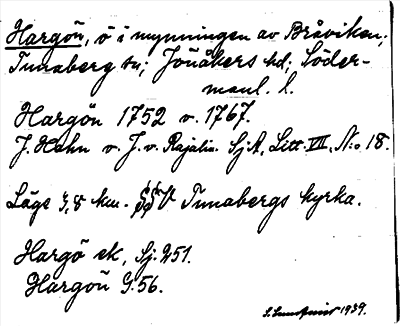 Hargön, ö i mynningen av Bråviken;
Tunaberg sn; Jönåkers hd; Söder-
manl. l.
Hargön 1752 v. 1767.
J. Hahn v. J. v. Rajalin. SjA, Litt. VII, N:o 18.
Läge 3,8 km. SSV Tunabergs kyrka.
Hargö ek, Sj. 251.
Hargön G. 56.
S. Lundqvist 1939.